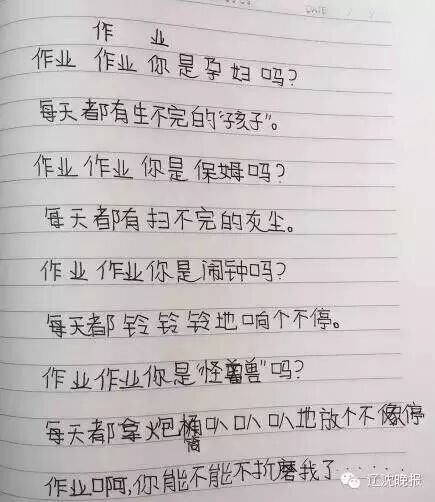 作 业
作业 作业 你是孕妇吗?
每天都有生不完的“孩子”。
作业作业你是保姆吗?
每天都有扫不完的灰尘。
作业作业你是闹钟吗?
每天都铃铃铃地响个不停。
作业作业你是“怪兽”吗?
每天都拿火炮筒叭叭叭地放个不停
作业啊,你能不能不折磨我了......
辽沈晚报